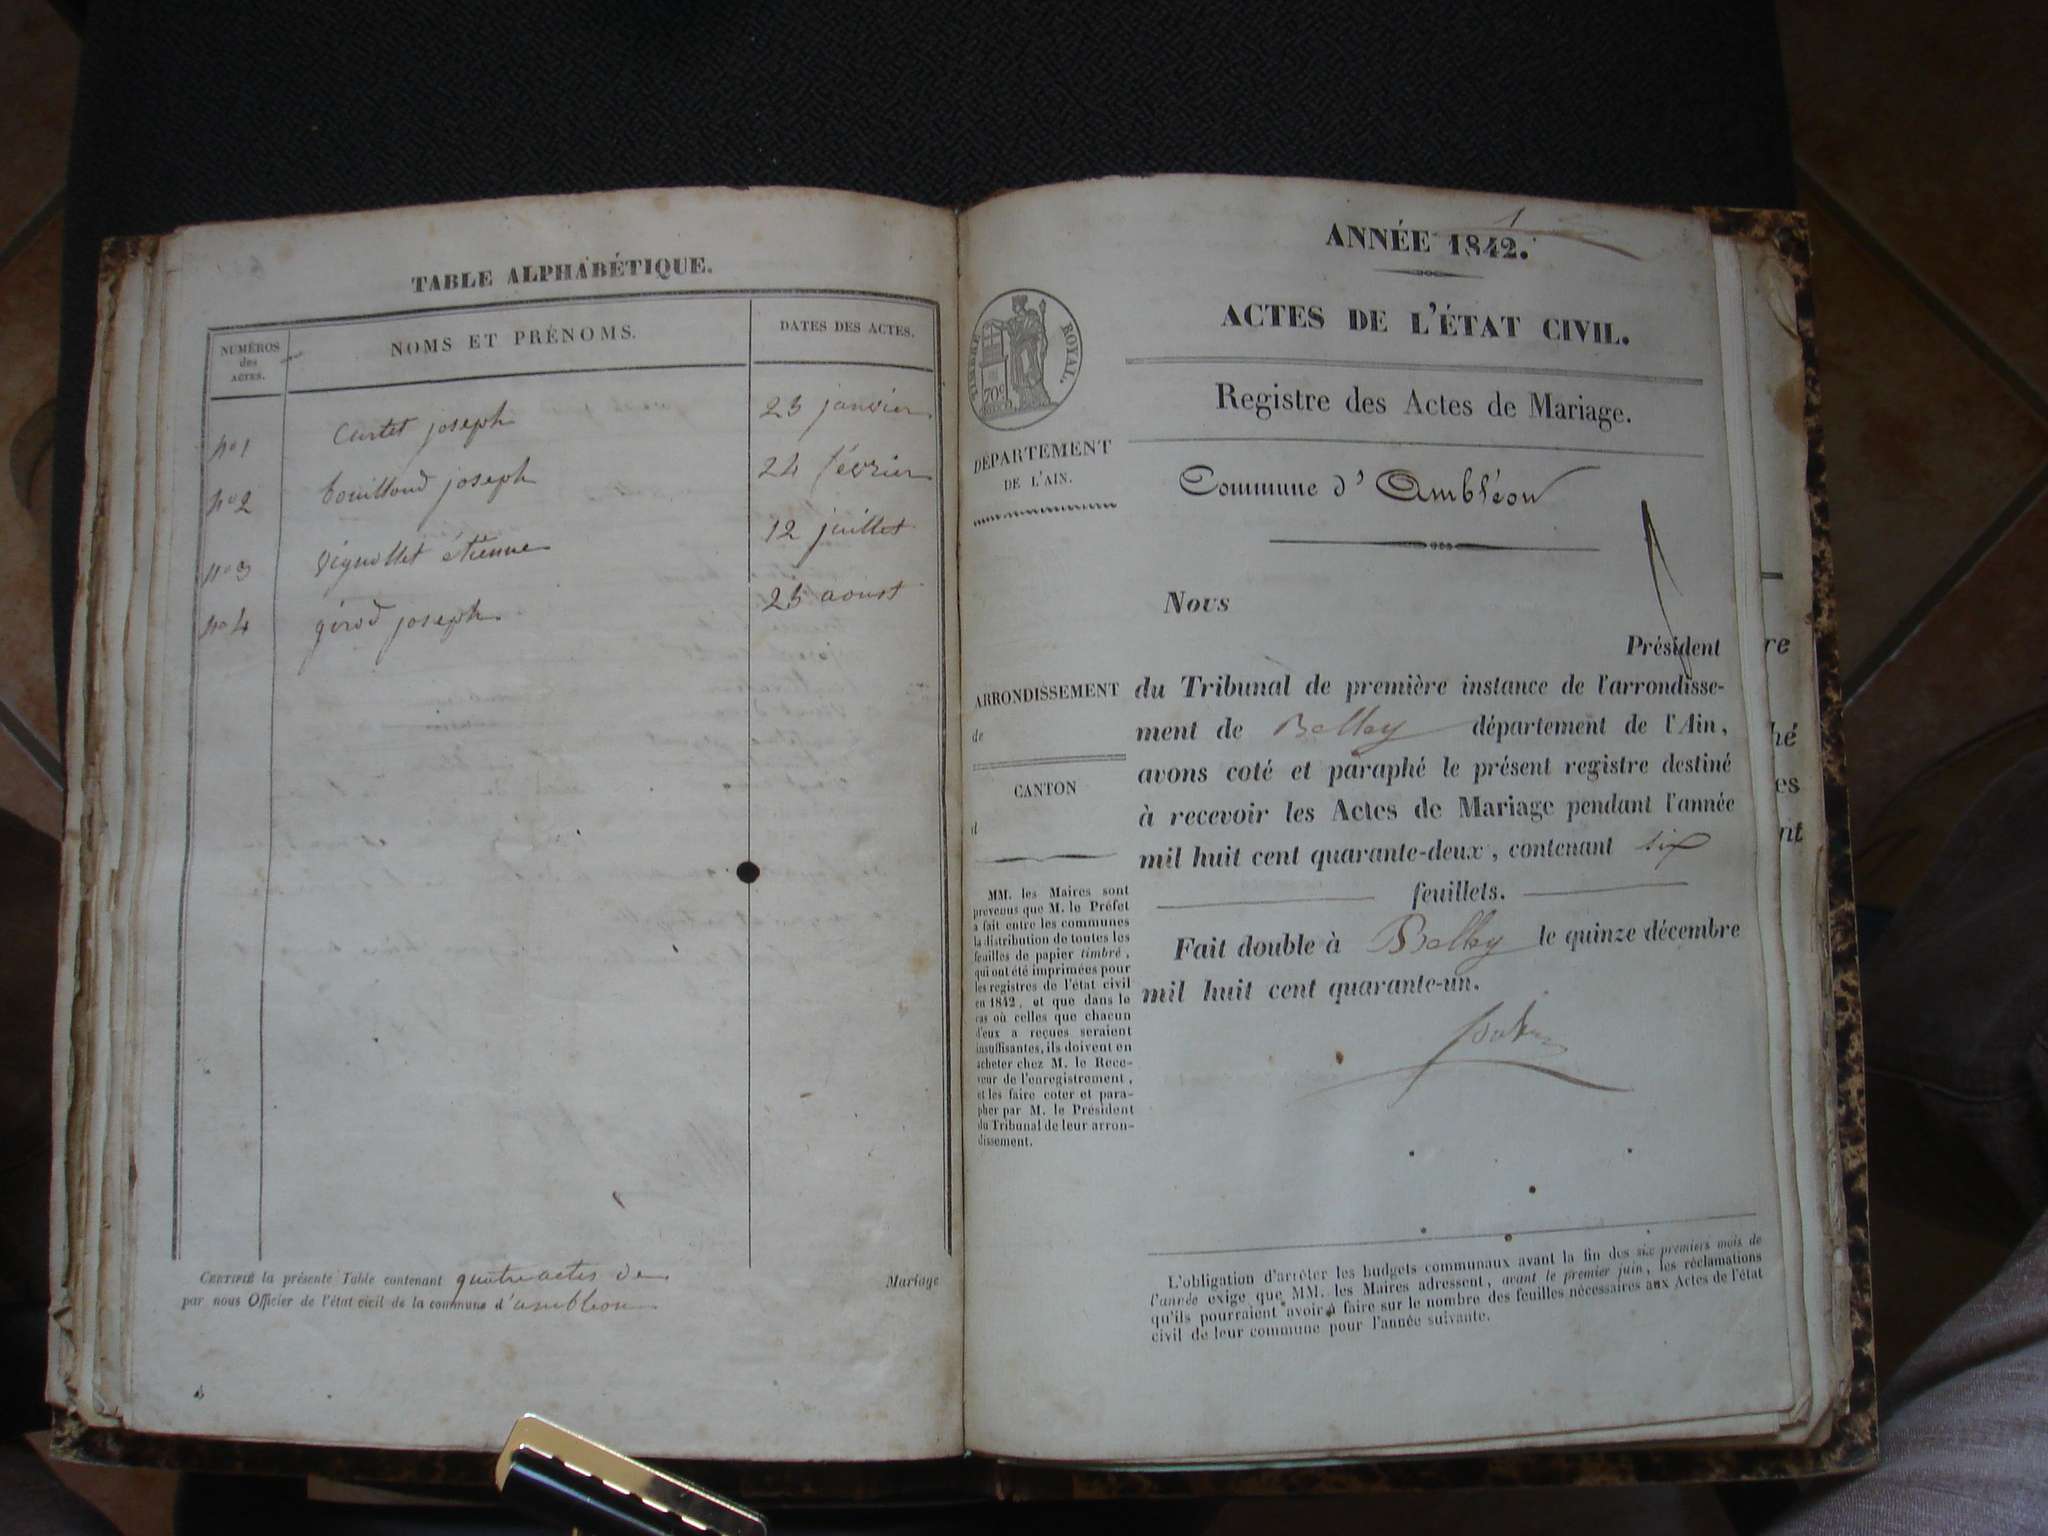 TABLE ALPHABÉTIQUE.
NUMÉROS
des
ACTES.
NOMS ET PRÉNOMS.
DATES DES ACTES.
nº1 Curtet joseph 23 janvier
nº2 bouilloud joseph 24 février
nº3 Vignollet étienne 12 juillet
nº4 girod joseph 25 aoust
CERTIFIÉ la présente Table contenant quatre actes de Mariage
par nous Officier de l'état civil de la commune d'ambléon
1
ANNÉE 1842.
ACTES DE L'ÉTAT CIVIL.
Registre des Actes de Mariage.
TIMBRE ROYAL.
70c
DÉPARTEMENT
DE L'AIN.
Commune d'Ambléon
Nous
Président
du Tribunal de première instance de l'arrondisse-
ment de Belley département de l'Ain,
avons coté et paraphé le présent registre destiné
à recevoir les Actes de Mariage pendant l'année
mil huit cent quarante-deux, contenant six
feuillets.
Fait double à Belley le quinze décembre
mil huit cent quarante-un.
ARRONDISSEMENT
de
CANTON
d
MM. les Maires sont
prévenus que M. le Préfet
a fait entre les communes
la distribution de toutes les
feuilles de papier timbré,
qui ont été imprimées pour
les registres de l'état civil
en 1842, et que dans le
cas où celles que chacun
d'eux a reçues seraient
insuffisantes, ils doivent en
acheter chez M. le Rece-
veur de l'enregistrement,
et les faire coter et para-
pher par M. le Président
du Tribunal de leur arron-
dissement.
L'obligation d'arrêter les budgets communaux avant la fin des six premiers mois de
l'année exige que MM. les Maires adressent, avant le premier juin, les réclamations
qu'ils pourraient avoir à faire sur le nombre des feuilles nécessaires aux Actes de l'état
civil de leur commune pour l'année suivante.
re
hé
es
nt